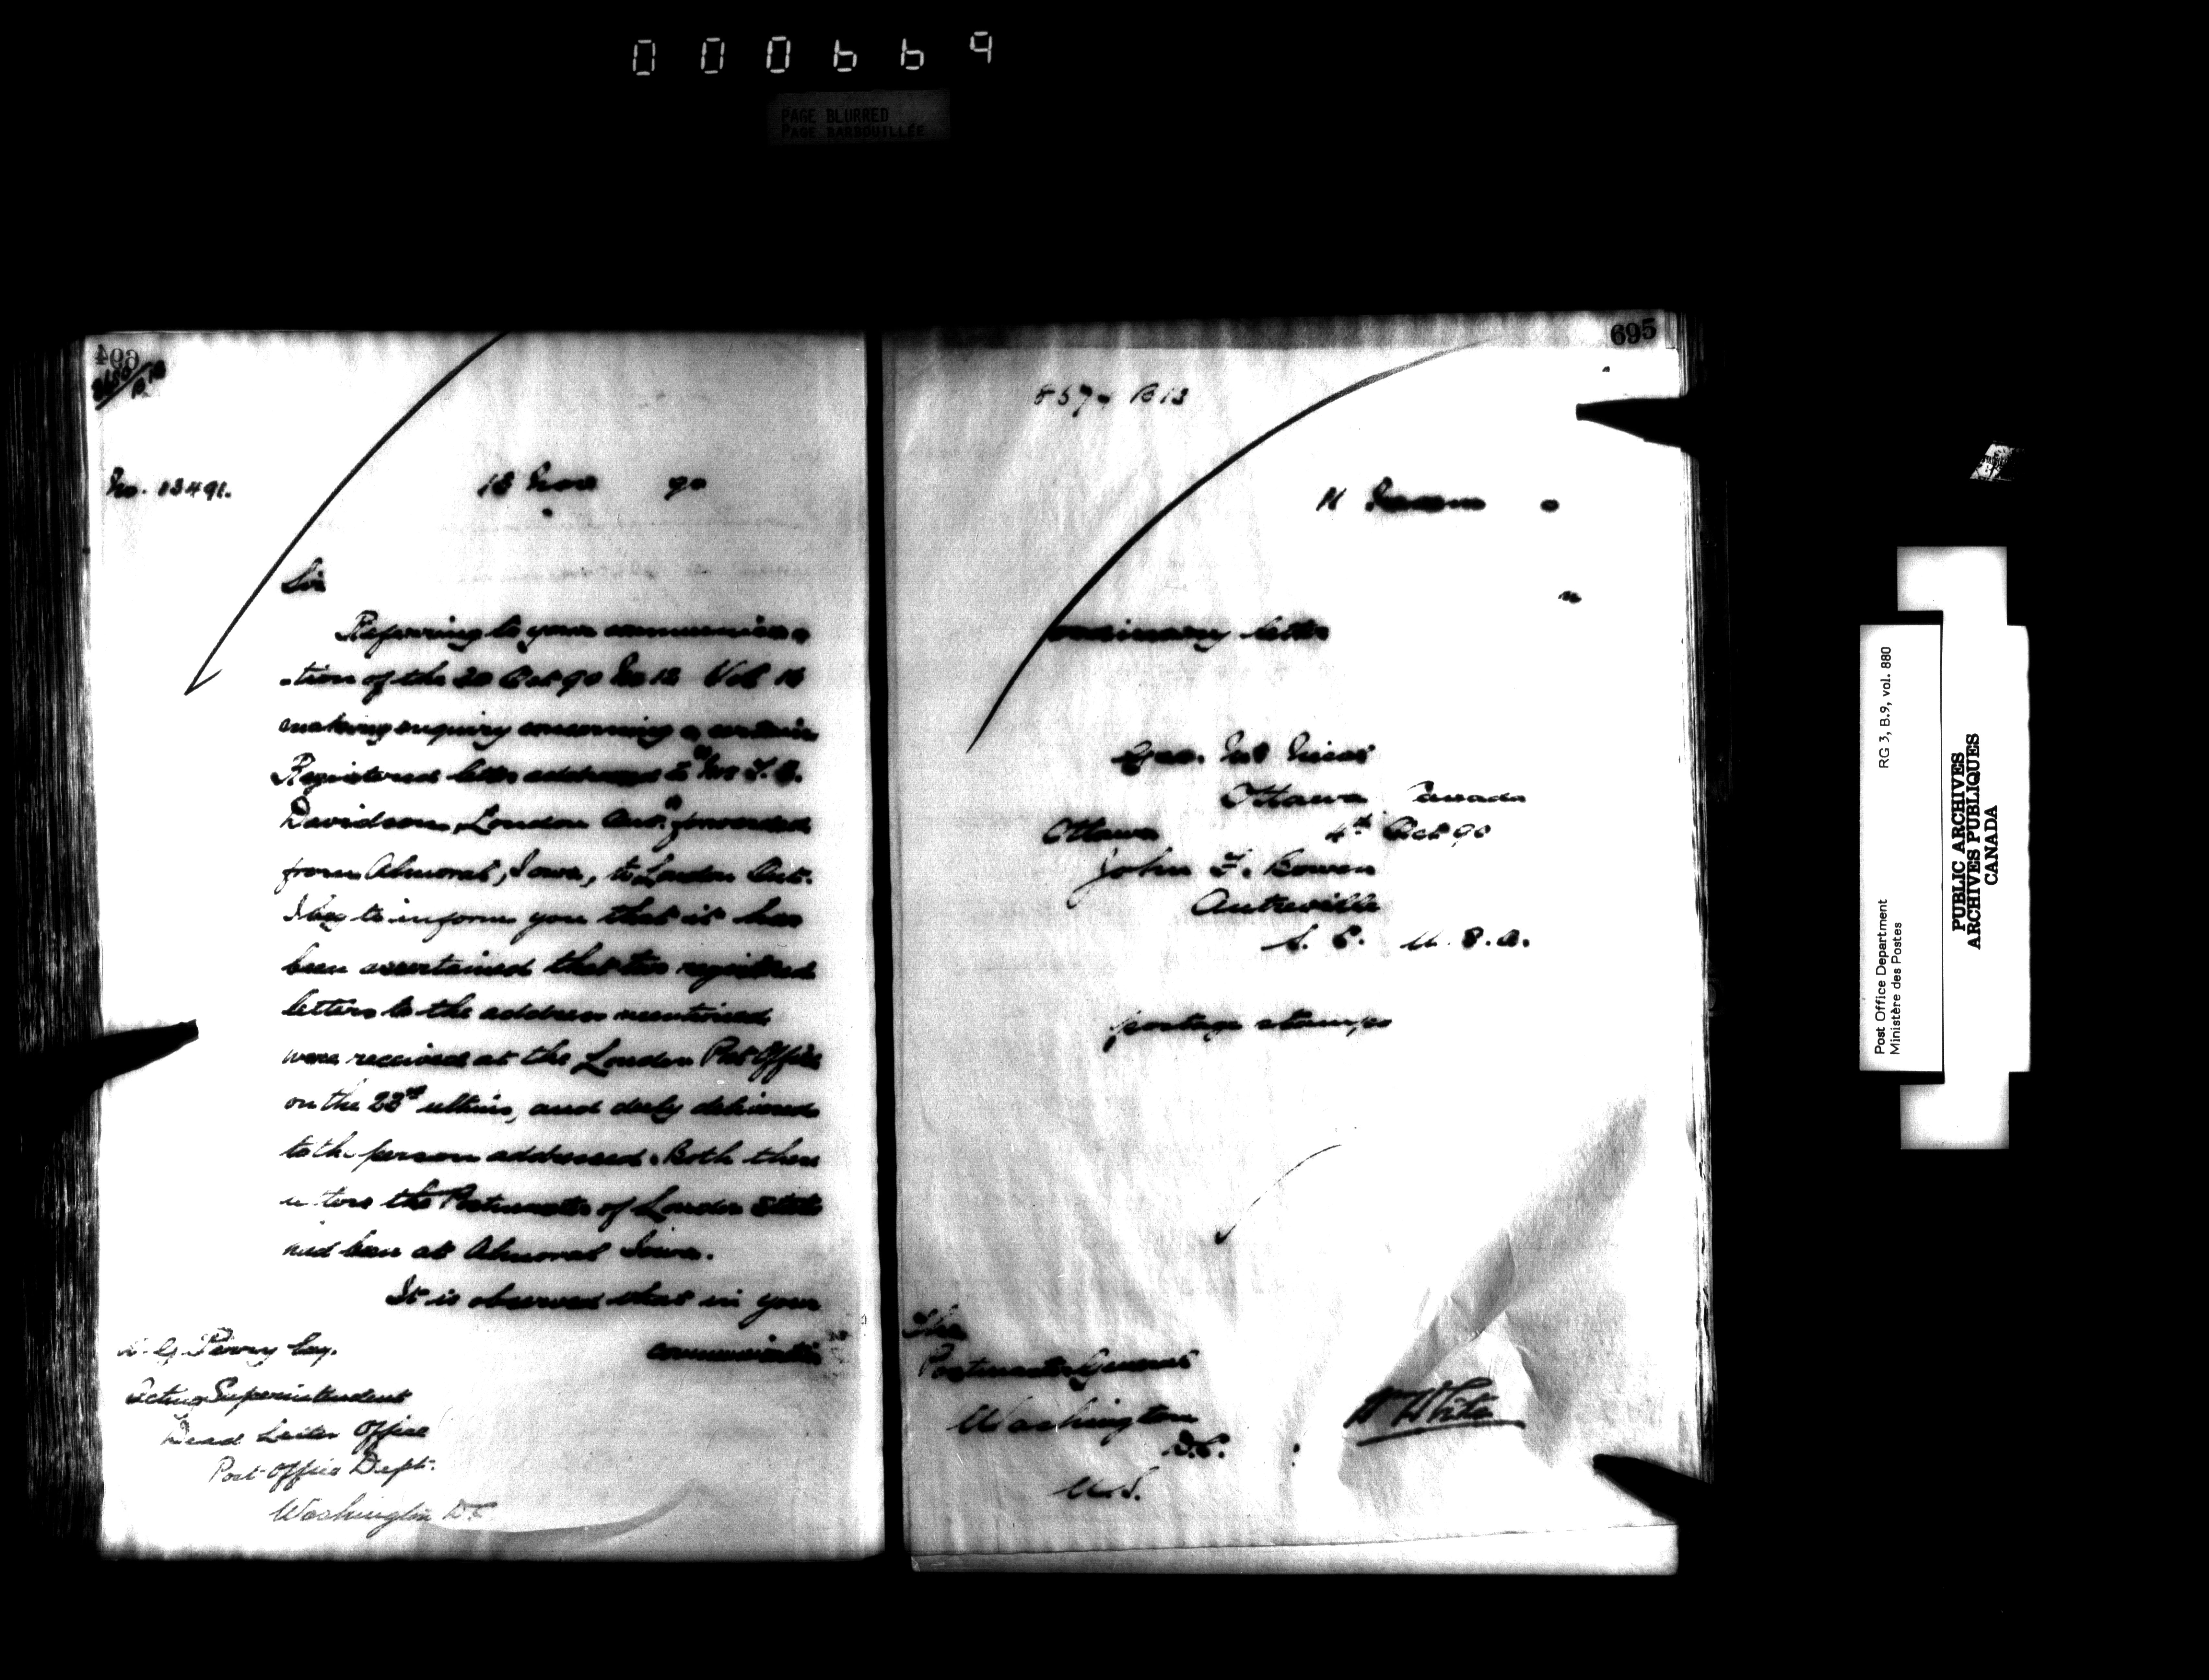 000669
PAGE BLURRED
PAGE BARBOUILLÉE
694
No. 13491.
18 Nov 90
Sir
Referring to your communica
tion of the 20 Oct 90 No 12 Vol 14
making enquiry concerning a certain
Registered letter addressed to
Davidson, London Ont. forwarded
from Almoral, Iowa, to London Ont.
I beg to inform you that it has
been ascertained that two registered
letters to the address mentioned
were received at the London Post Office
on the 23rd ultimo, and duly delivered
to the person addressed. Both these
the Postmaster of London states
had been at Almoral Iowa.
It is observed that in your
communication
Perry Esq.
Acting Superintendent
Dead Letter Office
Post Office Dept.
Washington D.C
695
B13
11
ordinary letter
Geo.
Ottawa Canada
Ottawa 4th Oct 90
John F. Bowen
Autreville
S. C. U. S. A.
postage stamps
The
Postmaster General
Washington
D.C.
U.S.
W White
Post Office Department
Ministère des Postes
RG 3, B.9, vol. 880
PUBLIC ARCHIVES
ARCHIVES PUBLIQUES
CANADA